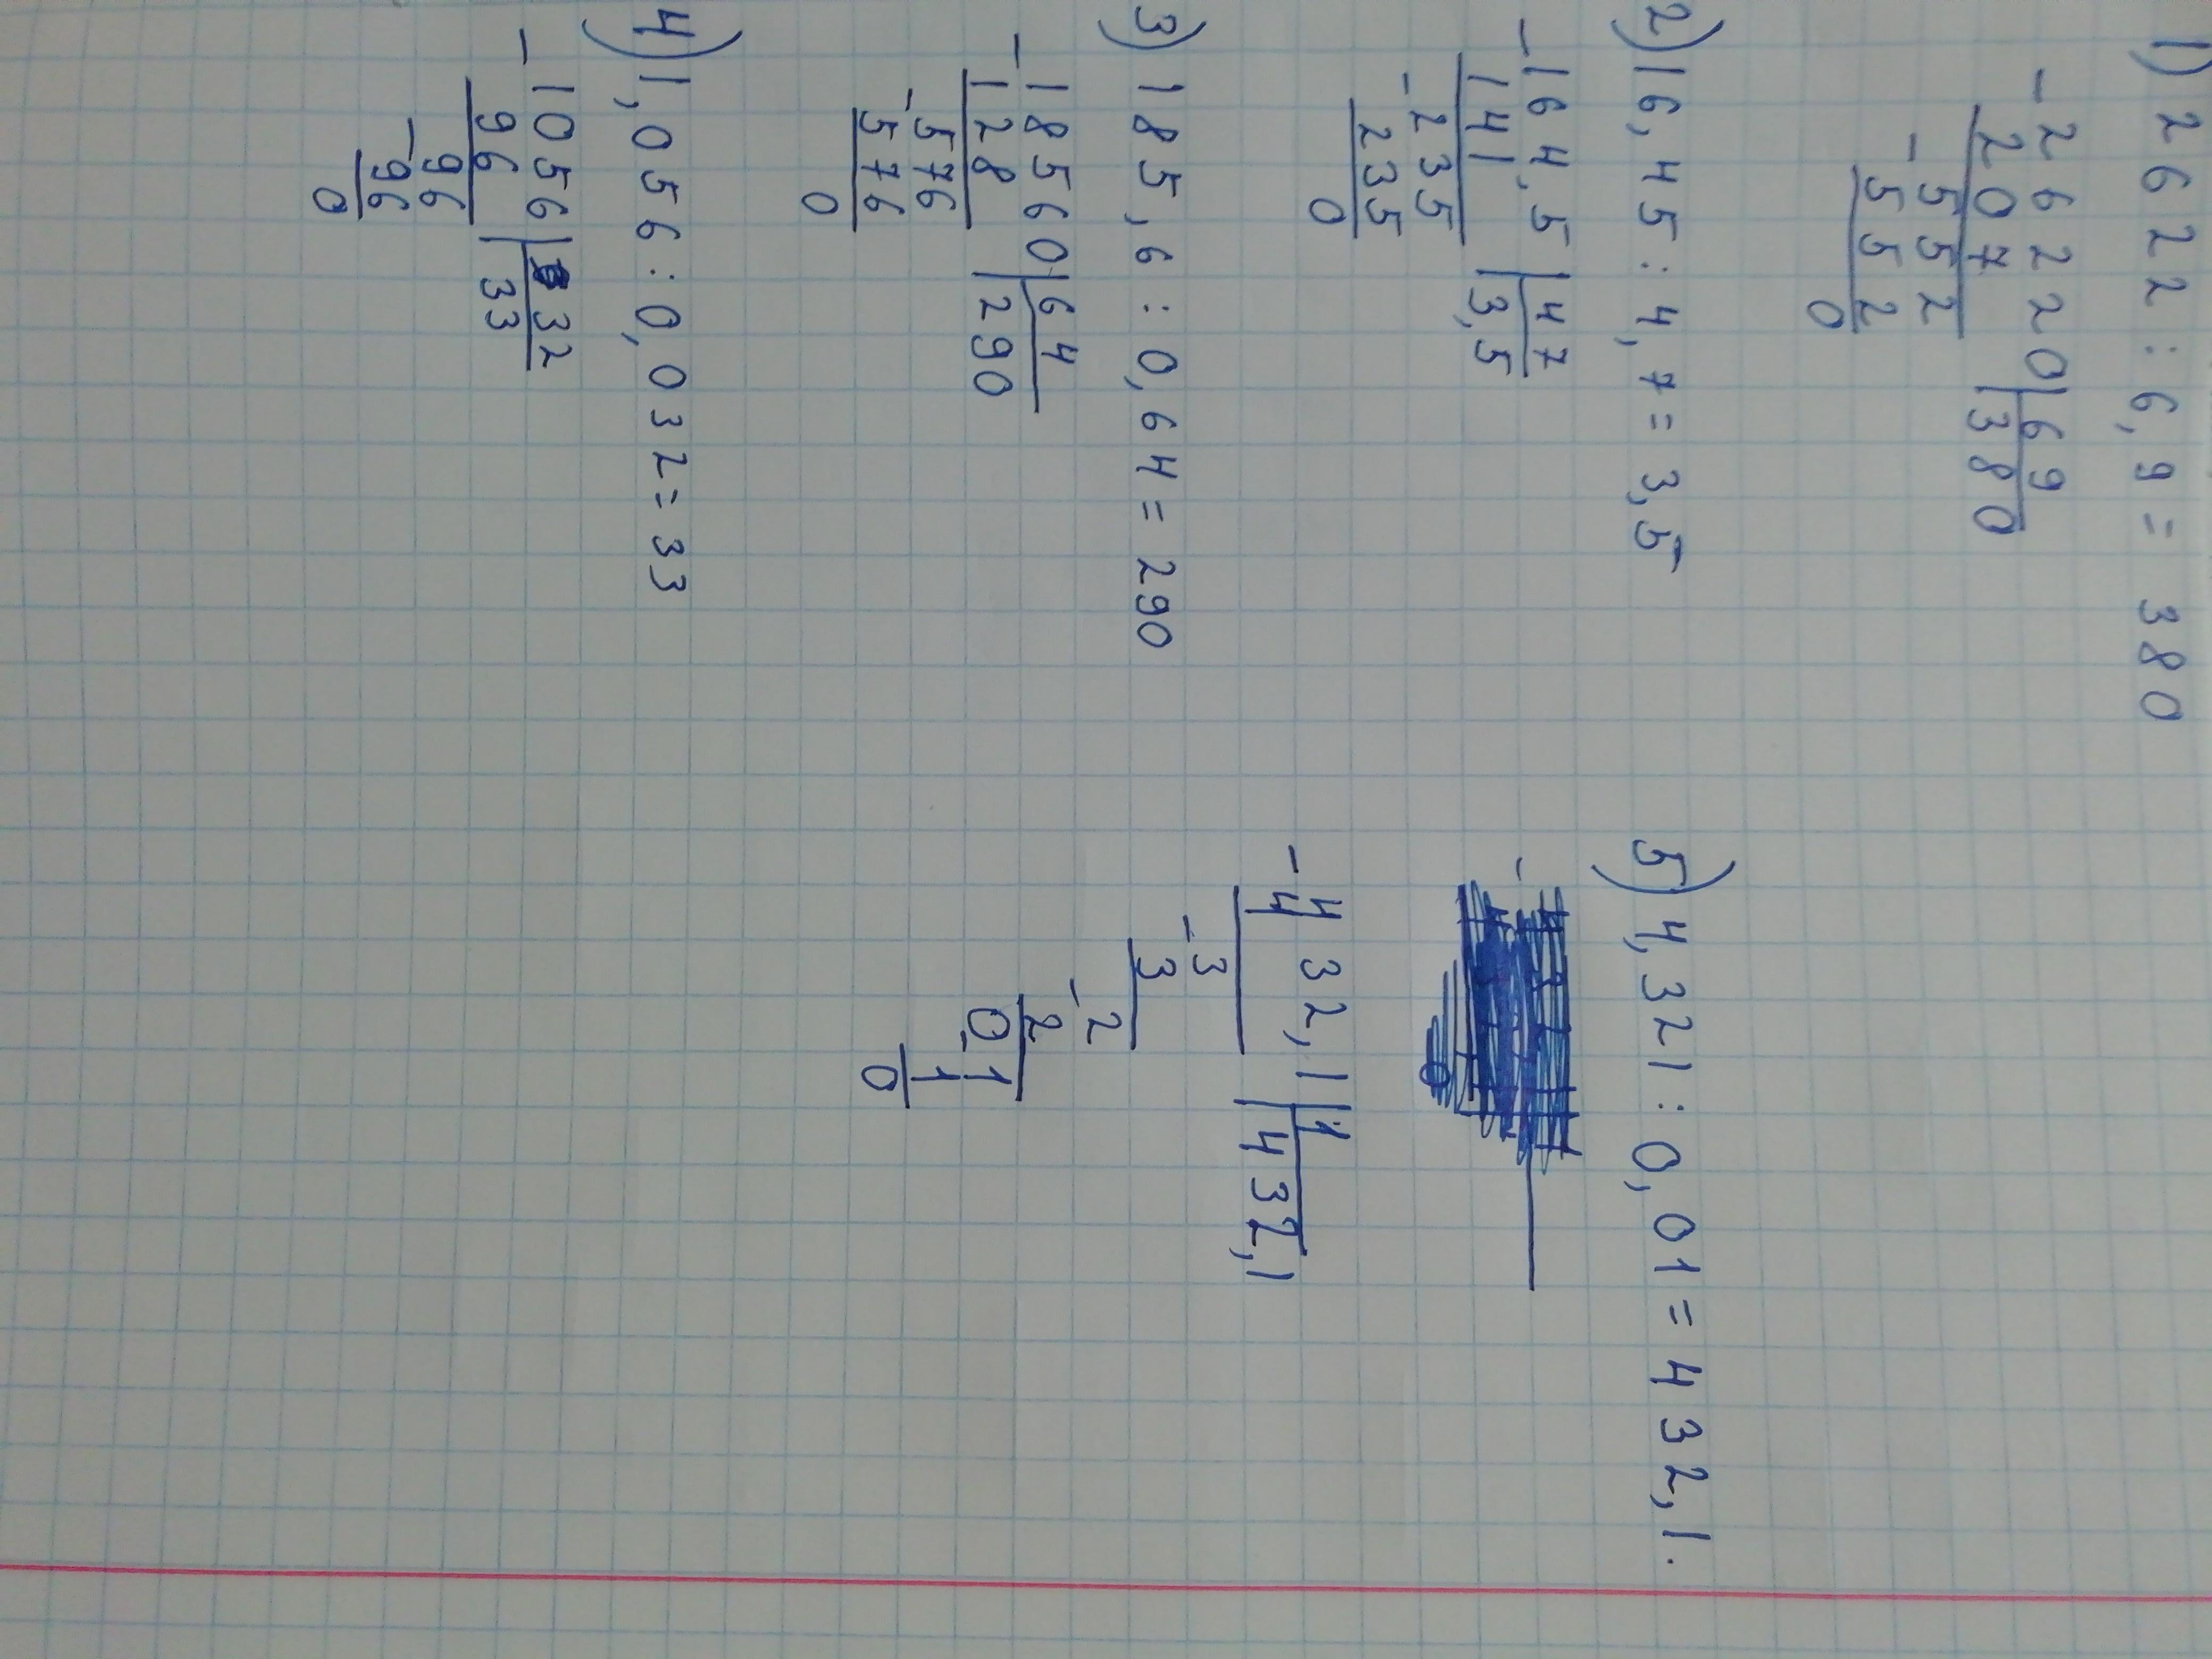 1) 2622 : 6,9 = 380
- 26220 | 69
207 | 380
- 552
552
0
2) 16,45 : 4,7 = 3,5
- 164,5 | 47
141 | 3,5
- 235
235
0
3) 185,6 : 0,64 = 290
- 18560 | 64
128 | 290
- 576
576
0
4) 1,056 : 0,032 = 33
- 1056 | 32
96 | 33
- 96
96
0
5) 4,321 : 0,01 = 432,1.
- 432,1 | 1
4 | 432,1
- 3
3
- 2
2
0 - 1
1
0